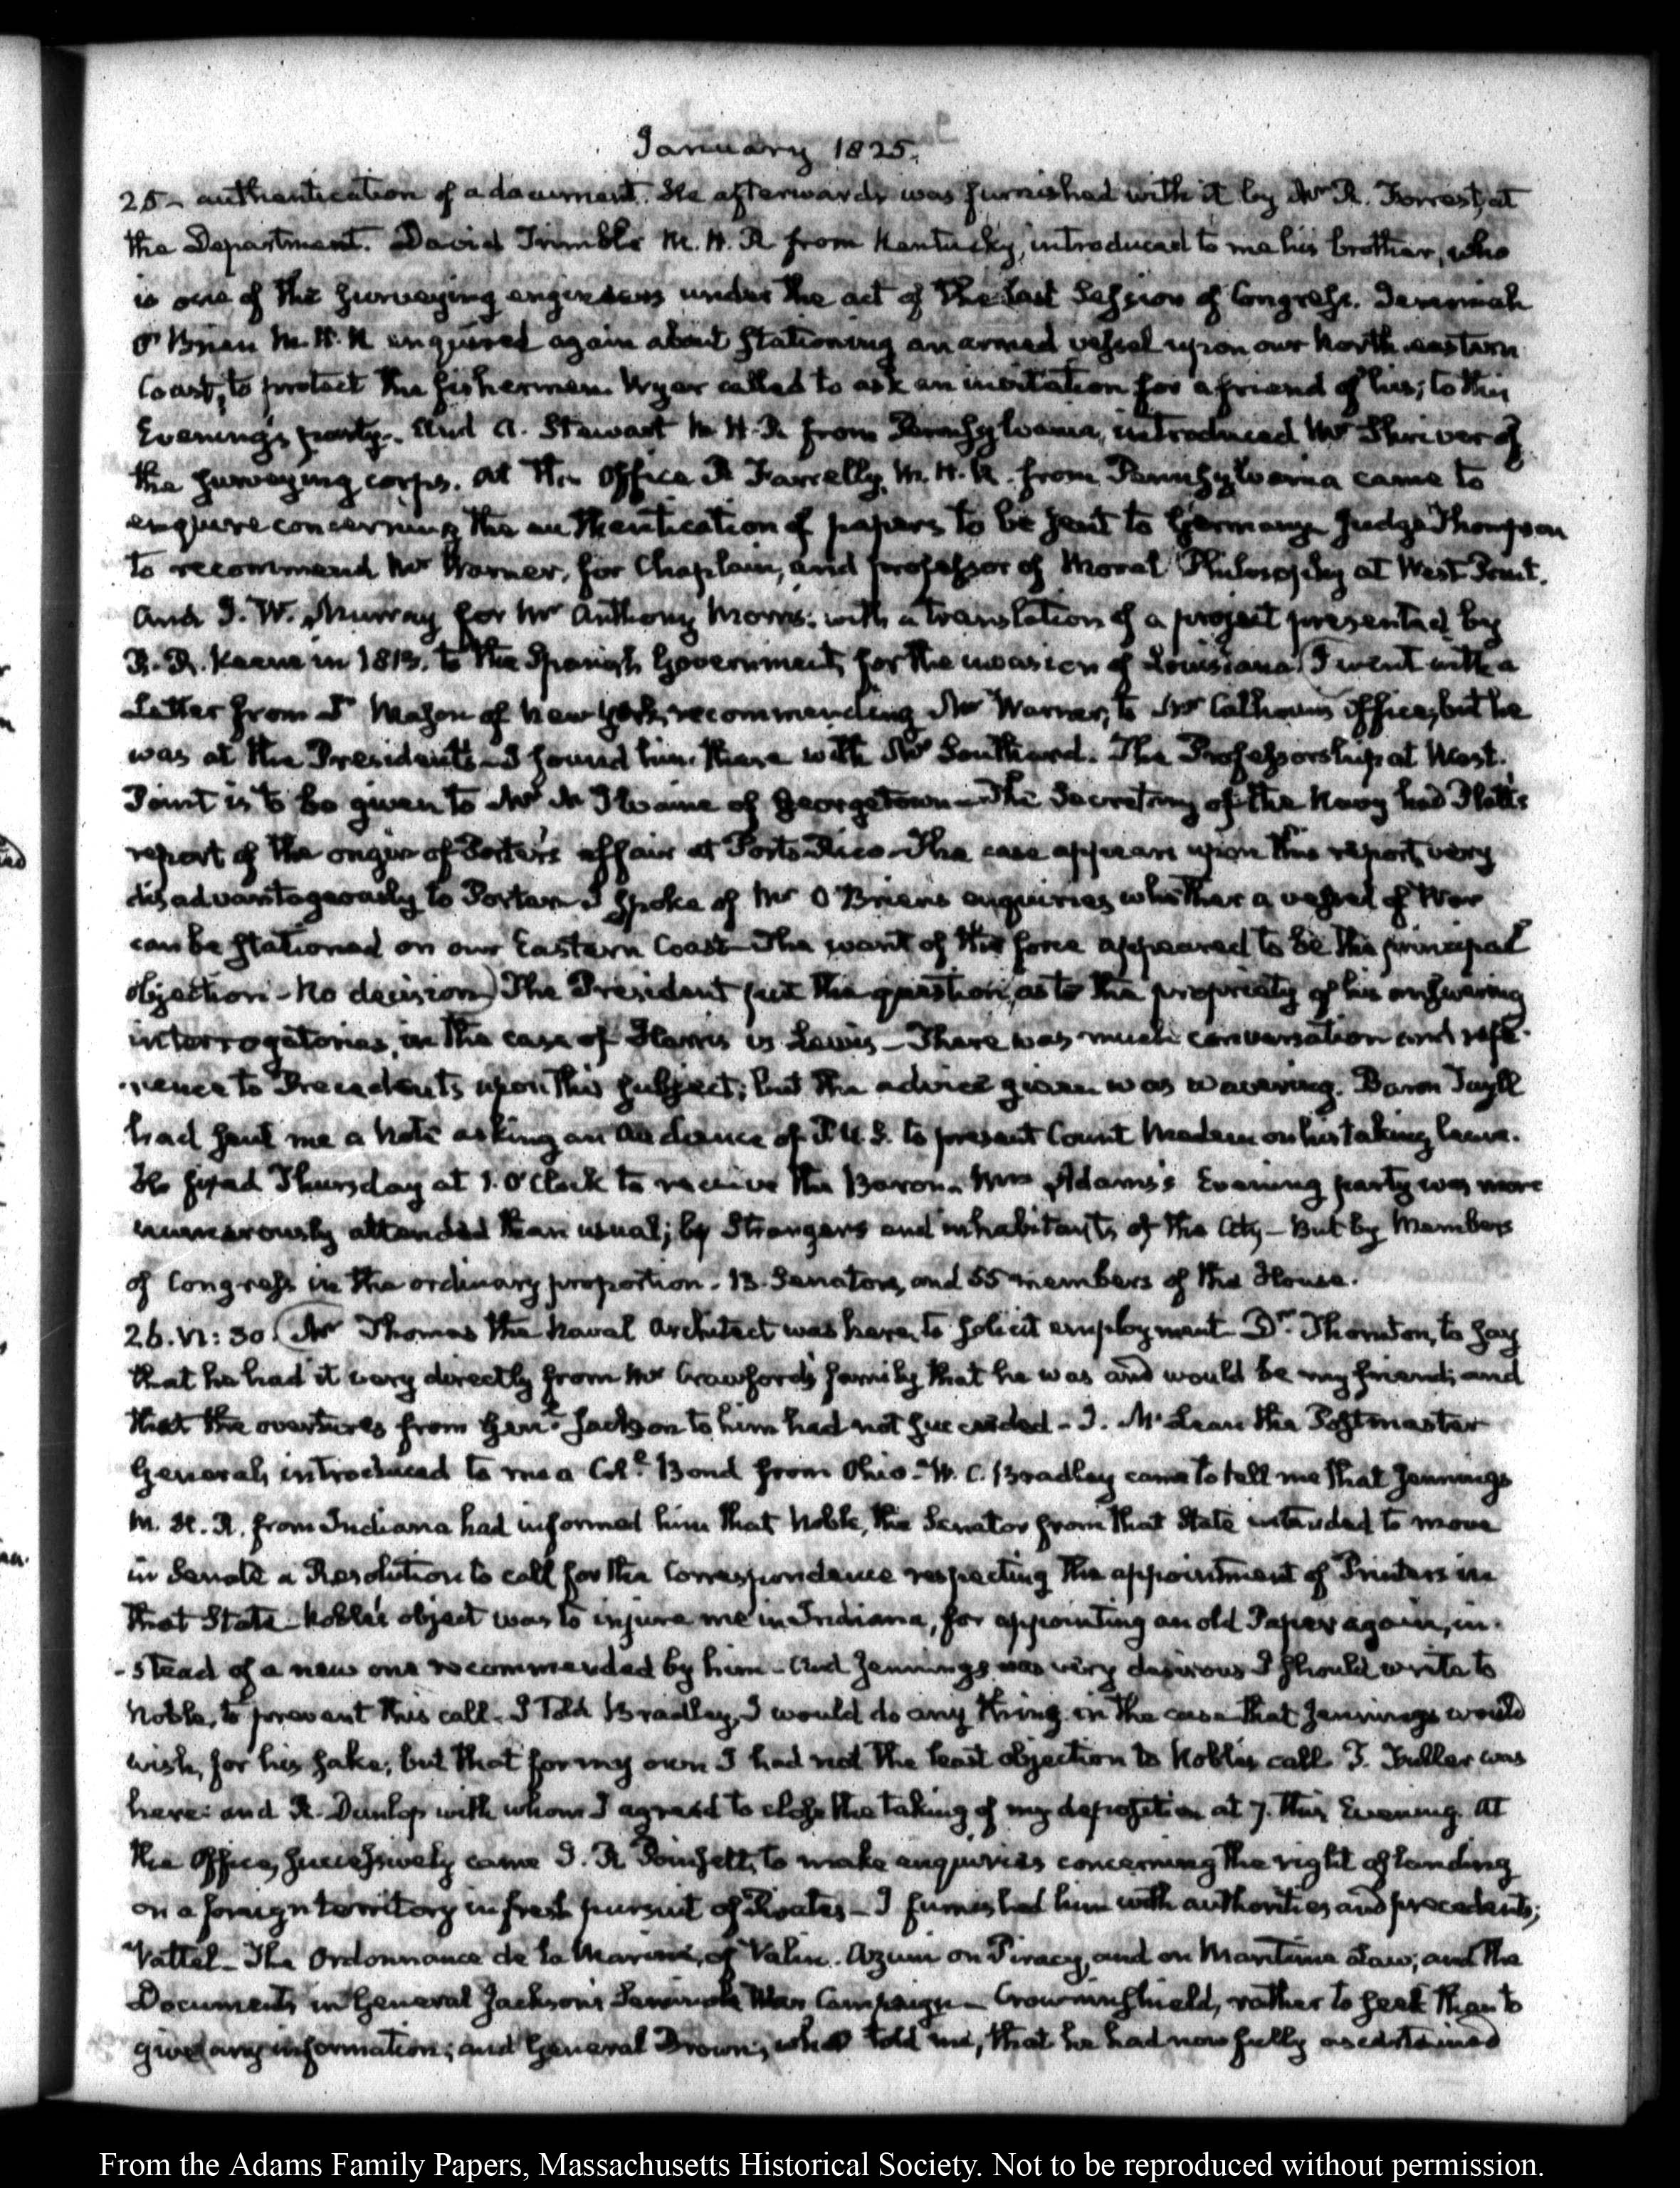 January 1825.
25 - authentication of a document. He afterwards was furnished with it by Mr R. Forrest, at
the Department. David Trimble M.H.R from Kentucky, introduced to me his brother, who
is one of the surveying engineers under the act of the last Session of Congress. Jeremiah
O'Brien M.H.R enquired again about stationing an armed vessel upon our North eastern
Coast, to protect the fishermen. Wyer called to ask an invitation for a friend of his; to this
Evening's party. And A. Stewart M.H.R from Pennsylvania, introduced Mr Shriver of
the surveying corps. At the Office P Farrelly, M.H.R. from Pennsylvania came to
enquire concerning the authentication of papers to be sent to Germany Judge Thompson
to recommend Mr Warner, for Chaplain, and professor of Moral Philosophy at West Point.
And J. W. Murray for Mr Anthony Morris: with a translation of a project presented by
R. R. Keene in 1813. to the Spanish Government, for the invasion of Louisiana. (I went with a
Letter from J Mason of New York, recommending Mr Warner, to Mr Calhoun's Office, but he
was at the President's - I found him there with Mr Southard. The Professorship at West.
Point is to be given to Mr McIlvaine of Georgetown - The Secretary of the Navy had Platt's
report of the origin of Porter's affair at Porto Rico - The case appears upon this report very
disadvantageously to Porter - I spoke of Mr O'Brien's enquiries whether a vessel of War
can be stationed on our Eastern Coast - The want of the force appeared to be the principal
objection - No decision) The President put the question, as to the propriety of his answering
interrogatories, in the case of Harris vs Lewis - There was much conversation and refe-
rence to Precedents upon this subject; but the advice given was wavering. Baron Tuyll
had sent me a Note asking an audience of P.U.S. to present Count Medem on his taking leave.
He fixed Thursday at 1. O'Clock to receive the Baron. Mrs Adams's Evening party was more
numerously attended than usual; by Strangers and inhabitants of the City - But by Members
of Congress in the ordinary proportion. 13. Senators, and 55 members of the House.
26. VI: 30. (Mr Thomas the Naval Architect was here, to solicit employment - Dr. Thornton, to say
that he had it very directly from Mr Crawford's family that he was and would be my friend; and
that the overtures from Genl. Jackson to him had not succeeded - J. McLean the Postmaster
General, introduced to me a Coll. Bond from Ohio - W. C. Bradley came to tell me that Jennings
M.H.R. from Indiana had informed him that Noble, the Senator from that State intended to move
in Senate a Resolution to call for the Correspondence respecting the appointment of Printers in
that State - Noble's object was to injure me in Indiana, for appointing an old Paper again, in-
-stead of a new one recommended by him - And Jennings was very desirous I should write to
Noble, to prevent this call. I told Bradley, I would do any thing in the case that Jennings would
wish, for his sake; but that for my own I had not the least objection to Noble's call. T. Fuller was
here: and R. Dunlop with whom I agreed to close the taking of my deposition at 7. this Evening. At
the Office, successively came J. R Poinsett, to make enquiries concerning the right of landing
on a foreign territory in fresh pursuit of Pirates - I furnished him with authorities and precedents;
Vattel - The Ordonnance de la Marine, of Valin. Azuni on Piracy, and on Maritime Law; and the
Documents in General Jackson's Seminole War Campaign - Crowninshield, rather to seek than to
give any information; and General Brown, who told me, that he had now fully ascertained
From the Adams Family Papers, Massachusetts Historical Society. Not to be reproduced without permission.